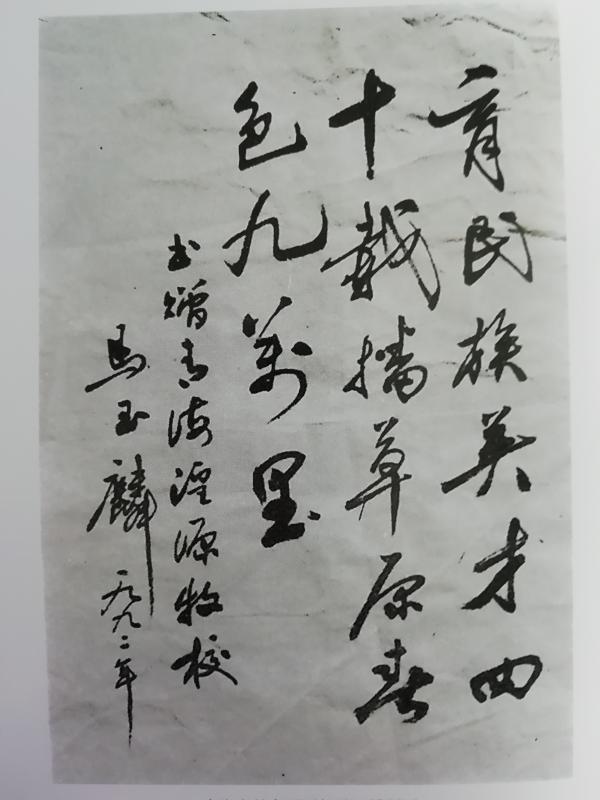 育民族英才四
十载播草原春
色九万里
书赠青海湟源牧校
馬玉麟 一九九二年